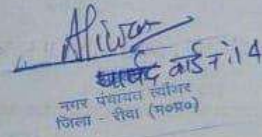 पार्षद वार्ड नं. 14
नगर पंचायत त्योंथर
जिला - रीवा (म०प्र०)